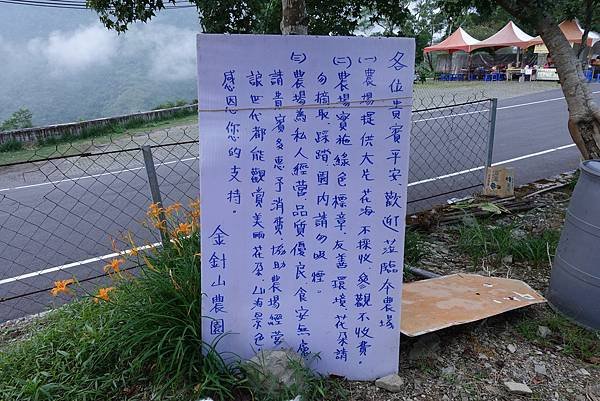 各位貴賓平安、歡迎蒞臨本農場
(一)農場提供大片花海不採收、參觀不收費。
(二)農場實施綠色標章、友善環境、花朵請
勿摘取、踩蹋、園內請勿吸煙。
(三)農場為私人經營、品質優良、食安無慮
請貴賓多惠予消費、協助農場經營
讓世代都能觀賞美麗花朵、山海景色
感恩您的支持。 金針山農園